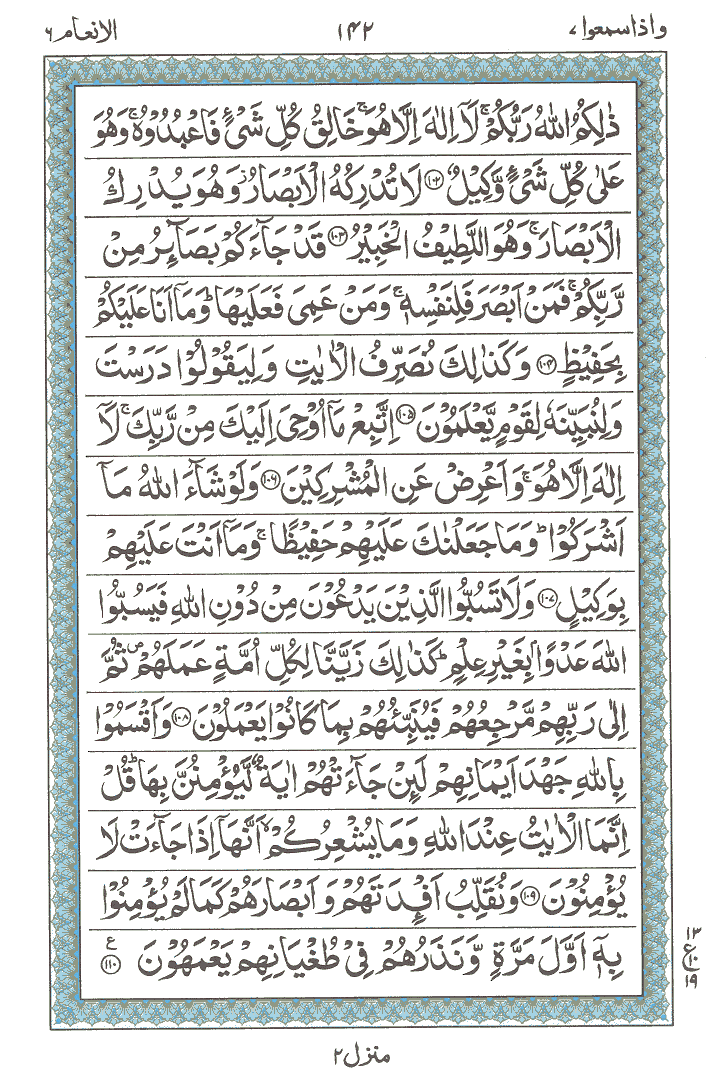 واذاسمعوا ٧ ١٤٢ الانعام ٦
ذٰلِكُمُ اللّٰهُ رَبُّكُمْ ۚ لَاۤ اِلٰهَ اِلَّا هُوَ ۚ خَالِقُ كُلِّ شَیْءٍ فَاعْبُدُوْهُ ۚ وَهُوَ
عَلٰى كُلِّ شَیْءٍ وَّكِیْلٌ ۝١٠٢ لَا تُدْرِكُهُ الْاَبْصَارُ ؗ وَهُوَ یُدْرِكُ
الْاَبْصَارَ ۚ وَهُوَ اللَّطِیْفُ الْخَبِیْرُ ۝١٠٣ قَدْ جَآءَكُمْ بَصَآىِٕرُ مِنْ
رَّبِّكُمْ ۚ فَمَنْ اَبْصَرَ فَلِنَفْسِهٖ ۚ وَمَنْ عَمِیَ فَعَلَیْهَا ؕ وَمَاۤ اَنَا عَلَیْكُمْ
بِحَفِیْظٍ ۝١٠٤ وَكَذٰلِكَ نُصَرِّفُ الْاٰیٰتِ وَلِیَقُوْلُوْا دَرَسْتَ
وَلِنُبَیِّنَهٗ لِقَوْمٍ یَّعْلَمُوْنَ ۝١٠٥ اِتَّبِعْ مَاۤ اُوْحِیَ اِلَیْكَ مِنْ رَّبِّكَ ۚ لَاۤ
اِلٰهَ اِلَّا هُوَ ۚ وَاَعْرِضْ عَنِ الْمُشْرِكِیْنَ ۝١٠٦ وَلَوْ شَآءَ اللّٰهُ مَاۤ
اَشْرَكُوْا ؕ وَمَا جَعَلْنٰكَ عَلَیْهِمْ حَفِیْظًا ۚ وَمَاۤ اَنْتَ عَلَیْهِمْ
بِوَكِیْلٍ ۝١٠٧ وَلَا تَسُبُّوا الَّذِیْنَ یَدْعُوْنَ مِنْ دُوْنِ اللّٰهِ فَیَسُبُّوا
اللّٰهَ عَدْوًۢا بِغَیْرِ عِلْمٍ ؕ كَذٰلِكَ زَیَّنَّا لِكُلِّ اُمَّةٍ عَمَلَهُمْ ۪ ثُمَّ
اِلٰى رَبِّهِمْ مَّرْجِعُهُمْ فَیُنَبِّئُهُمْ بِمَا كَانُوْا یَعْمَلُوْنَ ۝١٠٨ وَاَقْسَمُوْا
بِاللّٰهِ جَهْدَ اَیْمَانِهِمْ لَىِٕنْ جَآءَتْهُمْ اٰیَةٌ لَّیُؤْمِنُنَّ بِهَا ؕ قُلْ
اِنَّمَا الْاٰیٰتُ عِنْدَ اللّٰهِ وَمَا یُشْعِرُكُمْ ۙ اَنَّهَاۤ اِذَا جَآءَتْ لَا
یُؤْمِنُوْنَ ۝١٠٩ وَنُقَلِّبُ اَفْـِٕدَتَهُمْ وَاَبْصَارَهُمْ كَمَا لَمْ یُؤْمِنُوْا
بِهٖۤ اَوَّلَ مَرَّةٍ وَّنَذَرُهُمْ فِیْ طُغْیَانِهِمْ یَعْمَهُوْنَ ۝١١٠ ع
١٣
ع ١٠
١٩
منزل ٢